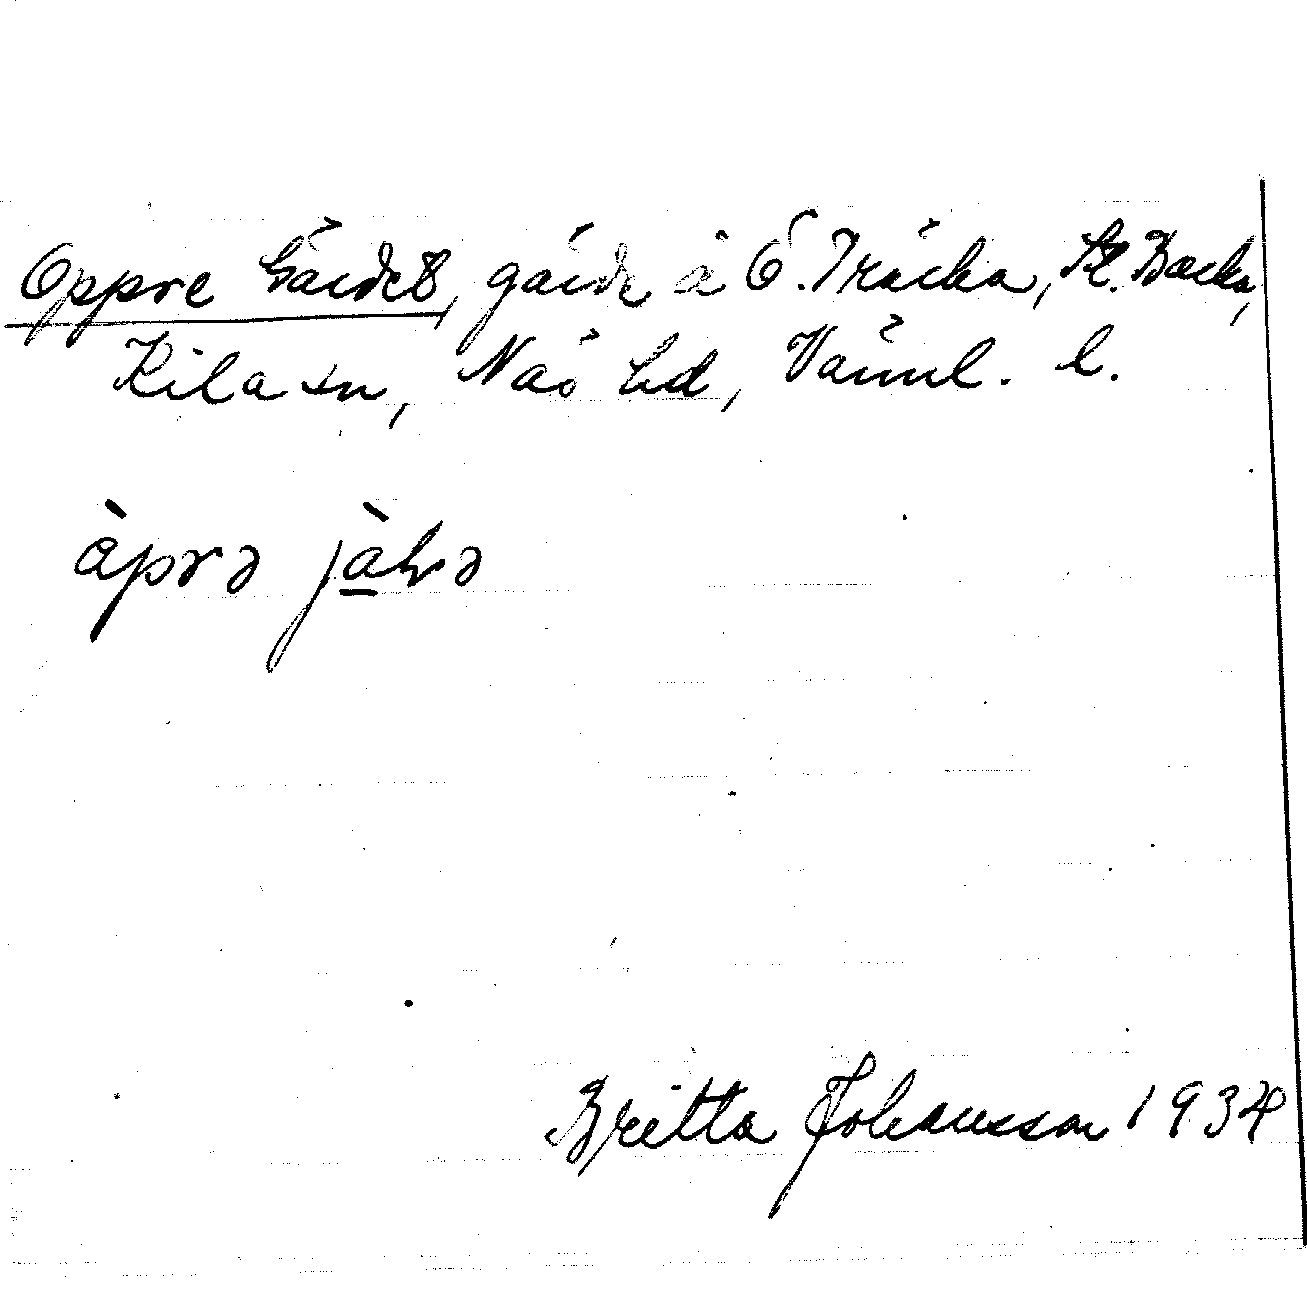 Oppre Gärdet, gärde å Ö. Träcka, St. Backa,
Kila sn, Näs hd, Värml. l.
àprə jàlṛə
Britta Johansson 1934